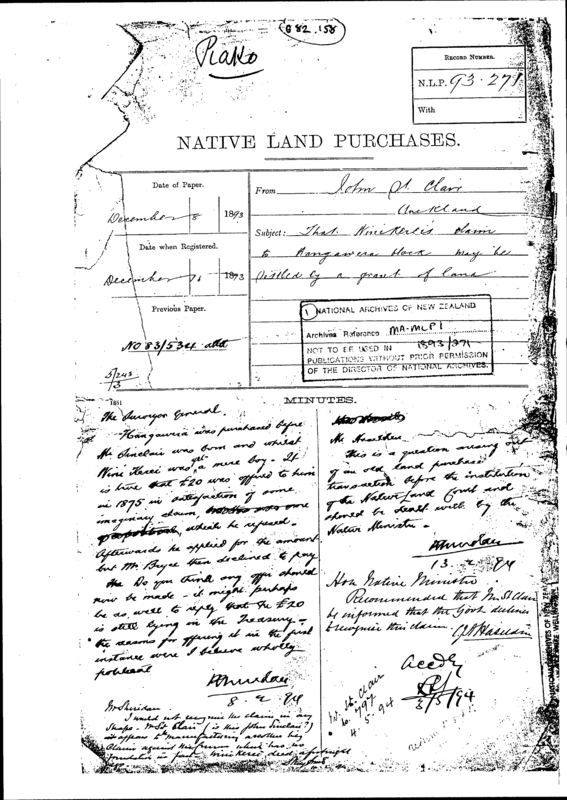 G 82.158
Piako
RECORD NUMBER.
N.L.P. 93.271
With
NATIVE LAND PURCHASES.
Date of Paper.
December 8 1893
Date when Registered.
December 1893
Previous Paper.
NO 83/534 attd
5/243
/3
From John St. Clair
Auckland
Subject: That Wini Kerei's claim
to Hangawera block may be
settled by a grant of land
1 NATIONAL ARCHIVES OF NEW ZEALAND
Archives Reference MA-MLP1
1893/271
NOT TO BE USED IN
PUBLICATIONS WITHOUT PRIOR PERMISSION
OF THE DIRECTOR OF NATIONAL ARCHIVES.
MINUTES.
The Surveyor General.
Hangawera was purchased before
Mr Sinclair was born and whilst
Wini Kerei was yet a mere boy. It
is true that £20 was offered to him
in 1875 in satisfaction of some
imaginary claim,
which he refused.
Afterwards he applied for the amount
but Mr. Bryce then declined to pay
Do you think any offer should
now be made - it might perhaps
be as well to reply that the £20
is still lying in the Treasury -
the reasons for offering it in the first
instance were I believe wholly
political
8.2.94
Mr Sheridan
I would not recognise the claim in any
shape - Mr St Clair (is this John Sinclair?)
appears to be manufacturing another big
claim against the Crown which has no
foundation in fact. Wini Kerei died a fortnight
Mr Haselden
this is a question arising out
of an old land purchase
transaction before the institution
of the Native Land Court and
should be dealt with by the
Native Minister -
13.2.94
Hon Native Minister
Recommended that Mr St Clair
be informed that the Govt declines
to recognise this claim.
Accdly
3/5/94
W. St. Clair
797
4.5.94